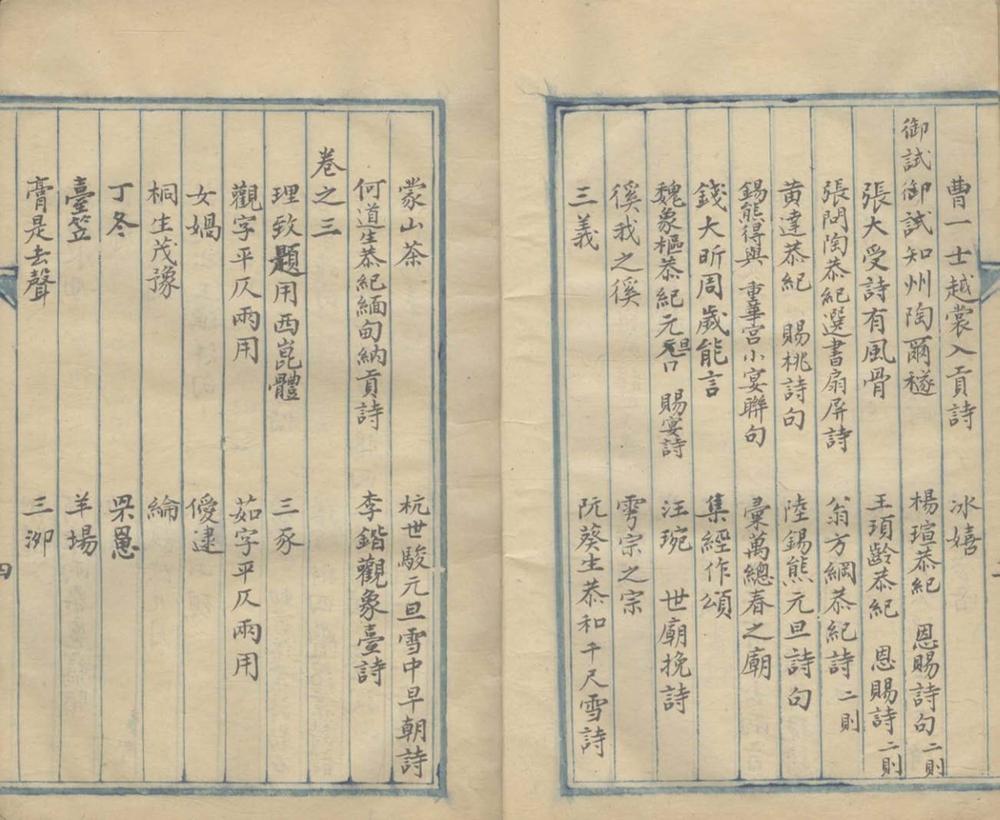 曹一士越裳入貢詩　冰嬉
御試御試知州陶爾穟　楊瑄恭紀　恩賜詩句二則
張大受詩有風骨　王頊齡恭紀　恩賜詩二則
張問陶恭紀選書扇屏詩　翁方綱恭紀詩二則
黄達恭紀　賜桃詩句　陸錫熊元旦詩句
錫熊得與　重華宮小宴聯句　彙萬總春之廟
錢大昕周歲能言　集經作頌
魏象樞恭紀元旦　賜宴詩　汪琬　世廟挽詩
徯我之徯　雩宗之宗
三義　阮葵生恭和千尺雪詩
蒙山茶　杭世駿元旦雪中早朝詩
何道生恭紀緬甸納貢詩　李鍇觀象臺詩
卷之三
理致題用西崑體　三豕
觀字平仄兩用　茹字平仄兩用
女媧　優逮
桐生茂豫　綸
丁冬　罘罳
臺笠　羊場
膏是去聲　三泖
四